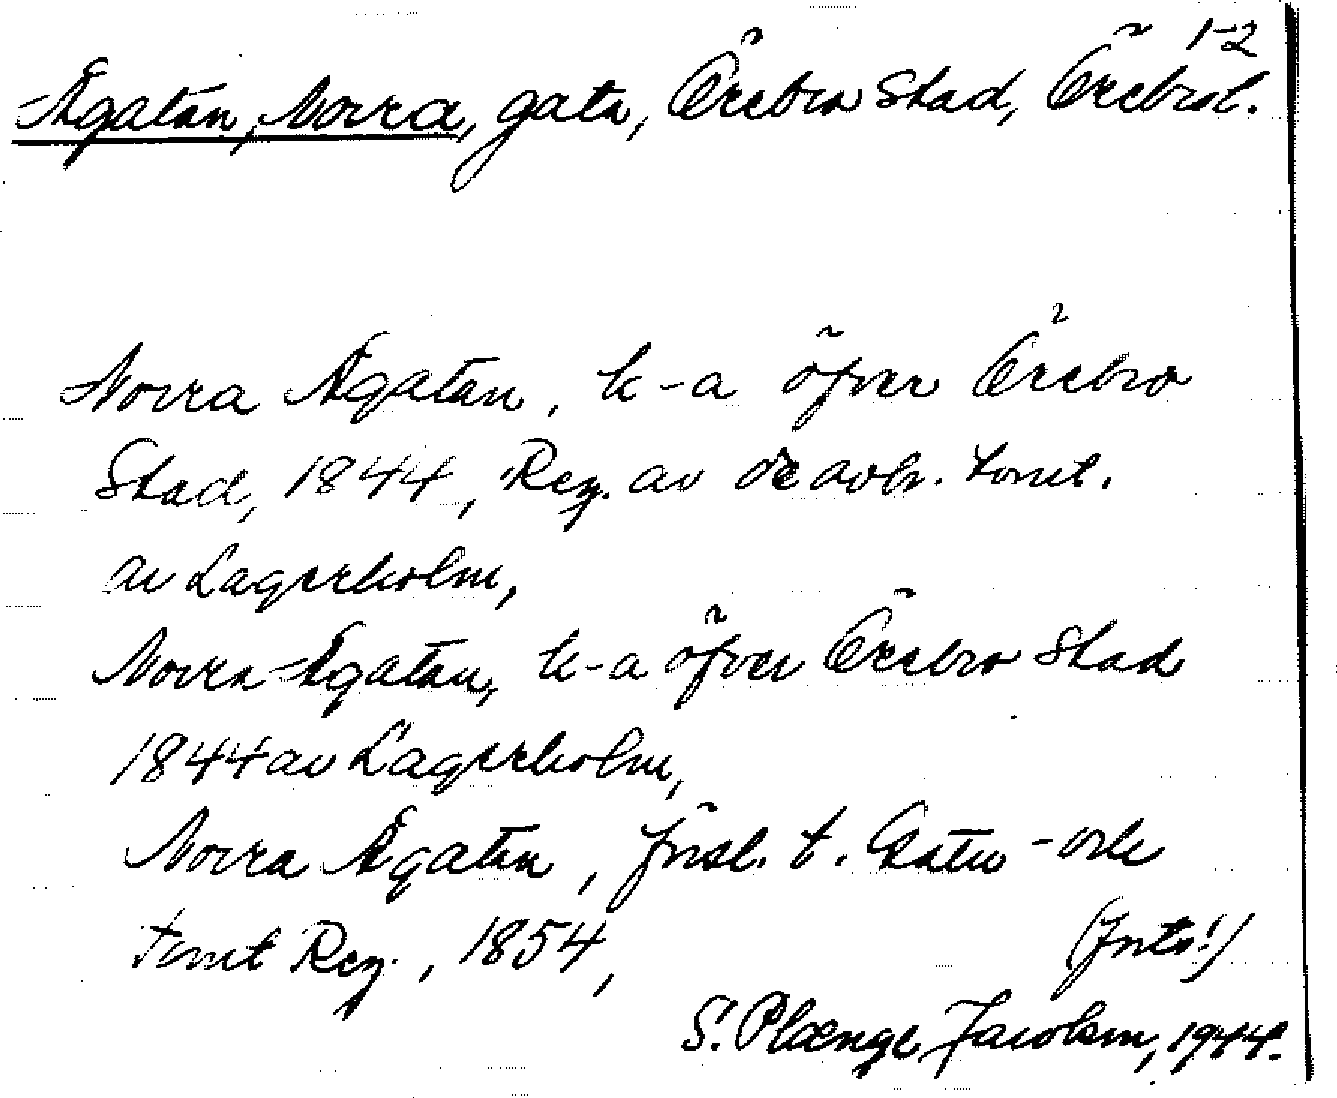 1-2
Ågatan, Norra, gata, Örebro Stad, Örebrol.
Norra Ågatan, k-a öfver Örebro
Stad, 1844, Reg. av de avbr. tomt.
av Lagerholm,
Norra Ågatan, k-a öfver Örebro Stad
1844 av Lagerholm,
Norra Ågatan, försl. t. Gatu- och
tomt Reg., 1854,
(forts!)
S. Plænge Jacobson, 1944.